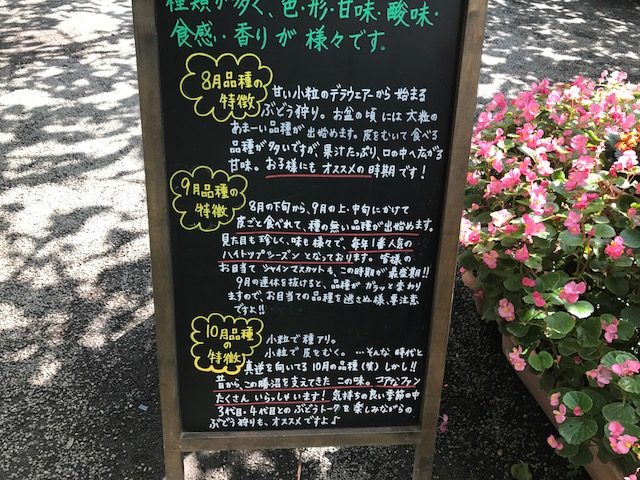 種類が多く、色・形・甘味・酸味・
食感・香りが様々です.
8月品種の
特徴
甘い小粒のデラウェアーから始まる
ぶどう狩り。お盆の頃には大粒の
あまーい品種が出始めます。皮をむいて食べる
品種が多いですが果汁たっぷり、口の中へ広がる
甘味。お子様にもオススメの時期です!
9月品種の
特徴
8月の下旬から、9月の上・中旬にかけて
皮ごと食べれて、種の無い品種が出始めます。
見た目も珍しく、味も様々で、毎年1番人気の
ハイトップシーズンとなっております。皆様の
お目当てシャインマスカットも、この時期が最盛期!!
9月の連休を抜けると、品種がガラッと変わり
ますので、お目当ての品種を逃さぬ様、要注意
ですよ!!
10月品種
の
特徴
小粒で種アリ。
小粒で皮をむく。…そんな時代と
真逆を向いてる10月の品種(笑)しかし!!
昔から、この勝沼を支えてきたこの味。コアなファン
たくさんいらっしゃいます!気持ちの良い季節の中
3代目・4代目とのぶどうトークを楽しみながらの
ぶどう狩りも、オススメですよ♪